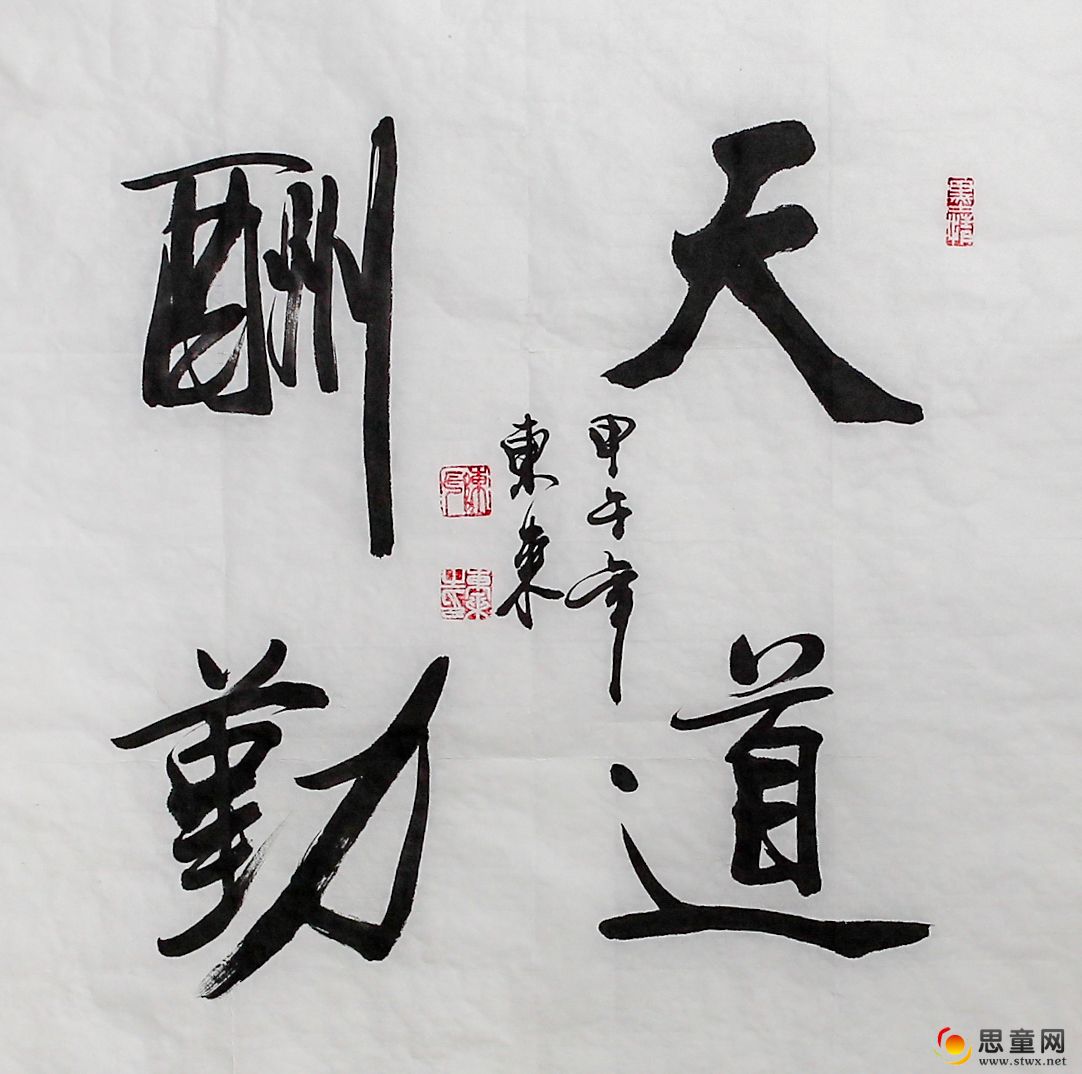 天道
酬勤
甲午年
東東
思童网
www.stwx.net